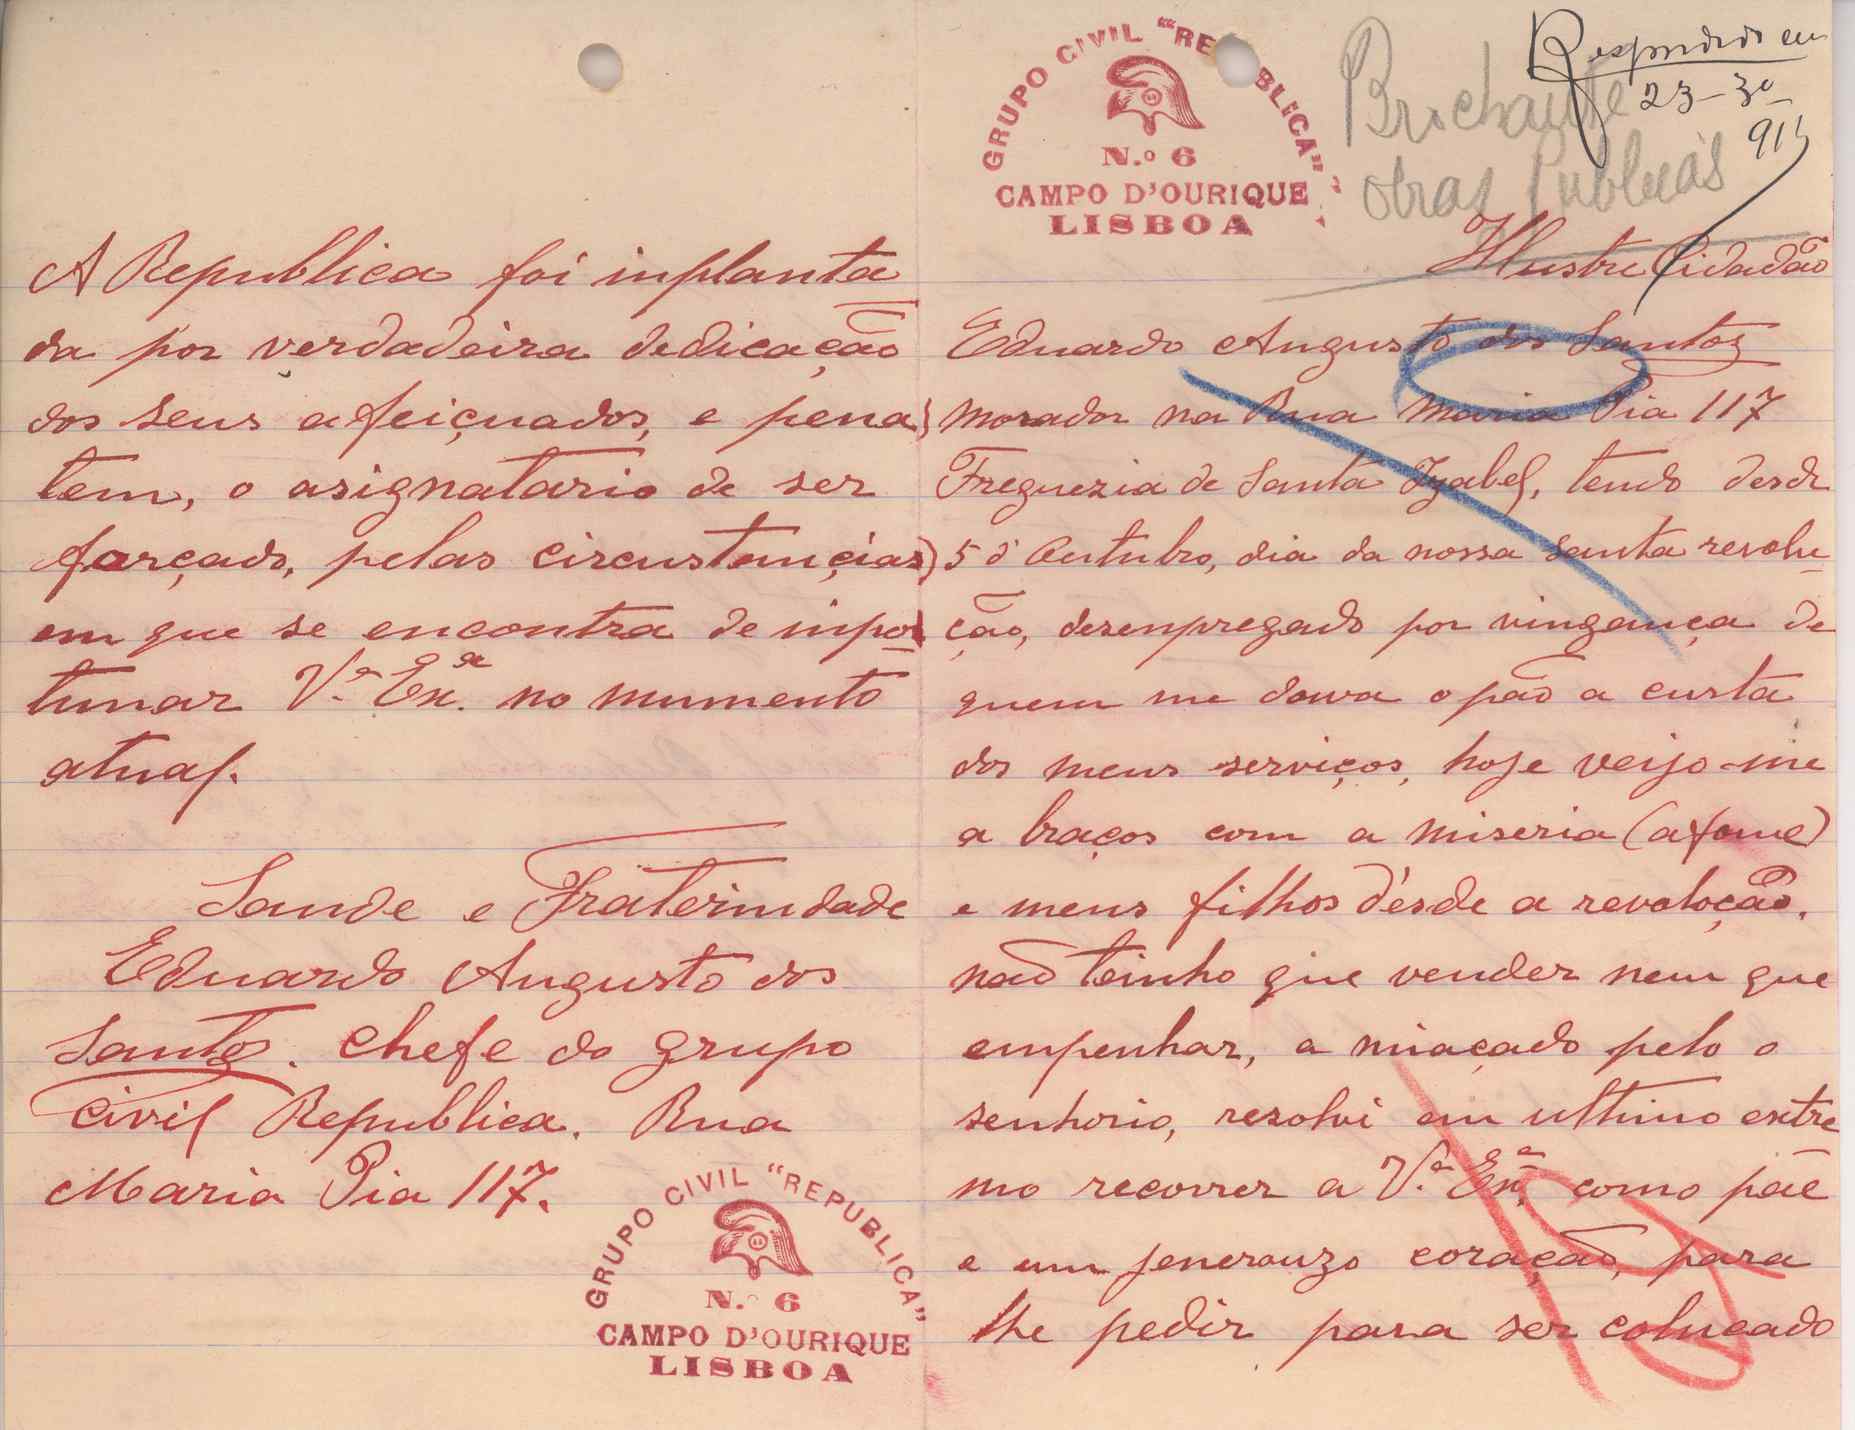 GRUPO CIVIL "REPUBLICA"
N.º 6
CAMPO D'OURIQUE
LISBOA
Respondido em
23-3º-
911
obras Publicas
Illustre Cidadão
Eduardo Augusto dos Santos
morador na Rua Maria Pia 117
Freguezia de Santa Izabel, tendo desde
5 d'Outubro, dia da nossa santa revolu-
ção, desenpregado por vingança de
quem me dava o pão a custa
dos meus serviços, hoje veijo-me
a braços com a miseria (afome)
e meus filhos désde a revoloção,
não teinho que vender nem que
empenhar, a miaçado pelo o
senhorio, resolvi em ultimo estre
mo recorrer a V.ª Ex.ª como páe
e um jenerouzo coração, para
lhe pedir para ser colucado
A Republica foi inplanta
da por verdadeira dedicação
dos seus afeiçuados, e pena
tem, o asignatario de ser
forçado, pelas circustançias
em que se encontra de inpor-
tunar V.ª Ex.ª no mumento
atual.
Saude e Fraternidade
Eduardo Augusto dos
Santos. chefe do grupo
civil Republica. Rua
Maria Pia 117.
GRUPO CIVIL "REPUBLICA"
N.º 6
CAMPO D'OURIQUE
LISBOA